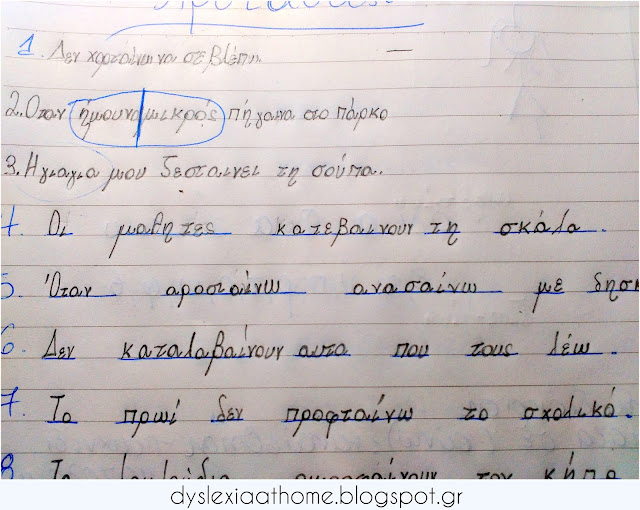 Προτάσεις.
1. Δεν χορταίνω να σε βλέπω.
2. Οταν ήμουνα μικρός πήγαινα στο πάρκο
3. Η γιαγια μου ζεσταινει τη σούπα.
4. Οι μαθητές κατεβαινουν τη σκάλα.
5. Όταν αροσταίνω ανασαίνω με δησκ
6. Δεν καταλαβαίνουν αυτα που τους λέω.
7. Το πρωί δεν προφταίνω το σχολικό.
8. Τα τον κήπο
dyslexiaathome.blogspot.gr